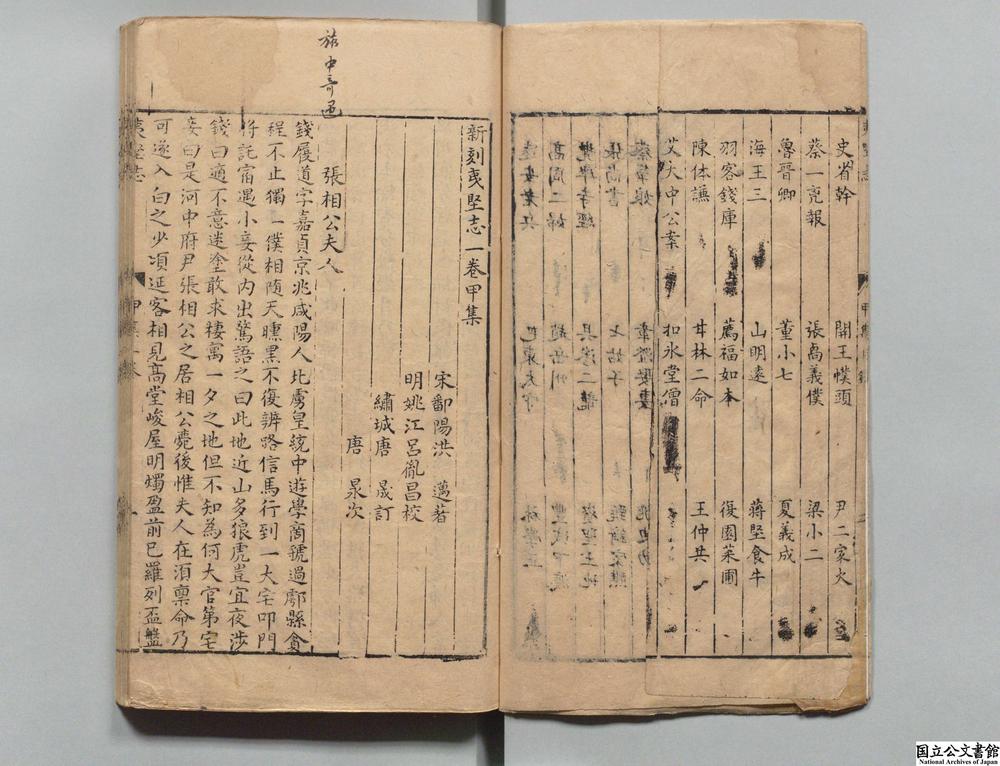 史省幹 開王幞頭 尹二家火
蔡一亮報 張喬義僕 梁小二
魯晋卿 董小七 夏義成
海王三 山明遠 蔣堅食牛
羽客錢庫 薦福如本 復園菜圃
陳体謙 甘林二命 王仲共
艾大中公案 扣氷堂僧
旅中奇遇
新刻夷堅志一卷甲集
宋鄱陽洪 邁著
明姚江呂胤昌校
繡城唐 晟訂
唐 㫤次
張相公夫人
錢履道字嘉貞京兆咸陽人北虜皇統中遊學商虢過鄠縣貪
程不止獨一僕相随天曛黑不復辨路信馬行到一大宅叩門
将託宿遇小妾從内出驚語之曰此地近山多狼虎豈宜夜涉
錢曰適不意迷塗敢求棲寓一夕之地但不知為何大官第宅
妾曰是河中府尹張相公之居相公薨後惟夫人在湏禀命乃
可遂入白之少頃延客相見髙堂峻屋明燭盈前已羅列盃盤
夷堅志 甲集一卷 一
国立公文書館
National Archives of Japan